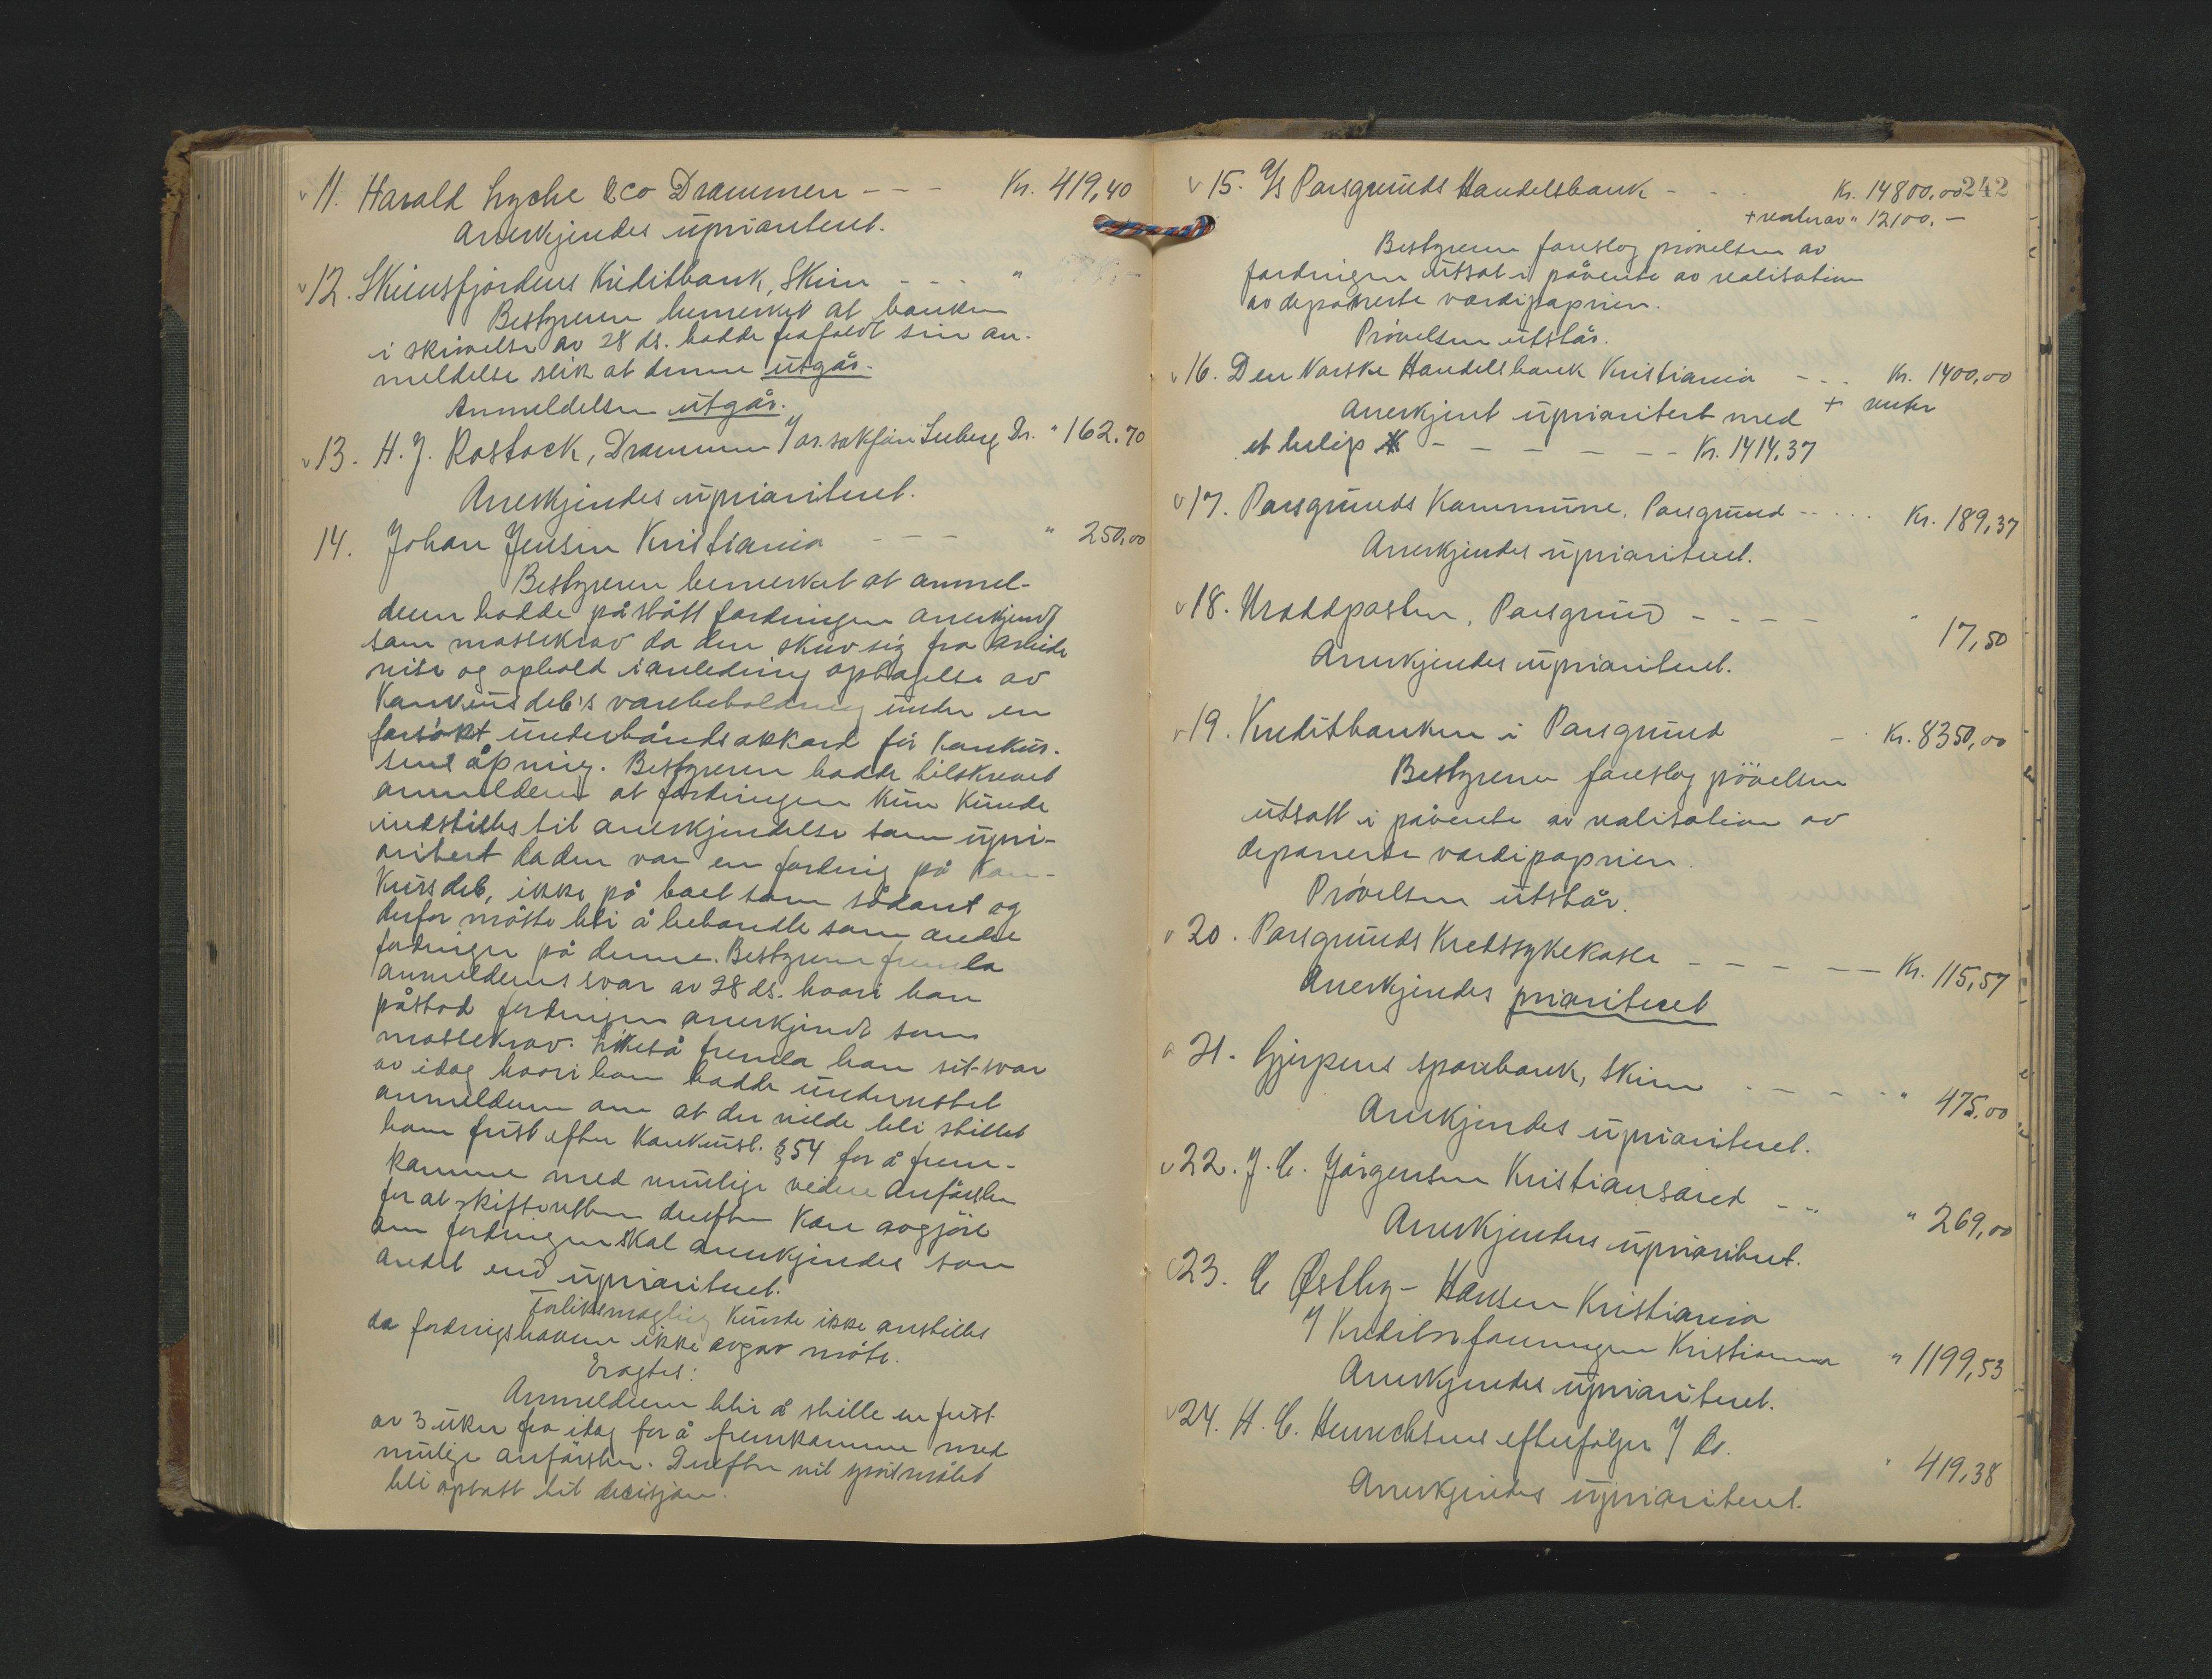 11. Harald Lyche & Co Drammen - - - Kr. 419,40
Anerkjendes uprioriteret.
12. Skiensfjordens Kreditbank, Skien - - - "
Bestyreren bemerket at banken
i skrivelse av 28 ds. hadde frafaldt sin an-
meldelse slik at denne utgår.
Anmeldelsen utgår.
13. H. J. Rostock, Drammen v/ o.r.sakfører Seeberg Dr. " 162.70
Anerkjendes uprioriteret.
14. Johan Jensen Kristiania - - - " 250,00
Bestyreren bemerket at anmel-
deren hadde påstått fordringen anerkjendt
som massekrav da den skrev sig fra arbeide
reise og ophold i anledning optagelse av
Konkursdeb's varebeholdning under en
forsøkt underhåndsakkord før konkur-
sens åpning. Bestyreren hadde tilskrevet
anmelderen at fordringen kun kunde
indstilles til anerkjendelse som upri-
oritert da den var en fordring på Kon-
kursdeb, ikke på boet som sådant og
derfor måtte bli å behandle som andre
fordringer på denne. Bestyreren fremla
anmelderens svar av 28 ds. hvori han
påstod fordringen anerkjendt som
massekrav. Likeså fremla han sit svar
av idag hvori han hadde underrettet
anmelderen om at der vilde bli stillet
ham frist efter Konkursl. § 54 for å frem-
komme med mulige videre anførsler
for at skifteretten derefter kan avgjøre
om fordringen skal anerkjendes som
andet end uprioriteret.
Forliksmægling kunde ikke anstilles
da fordringshaveren ikke avgav møte.
Eragtes:
Anmelderen blir å stille en frist
av 3 uker fra idag for å fremkomme med
mulige anførsler. Derefter vil spørsmålet
bli optatt til decisjon.
242
15. A/s Porsgrunds Handelsbank - - - Kr. 14800,00
+ renter av " 12100,-
Bestyreren foreslog prøvelsen av
fordringen utsat i påvente av realisation
av deponerte værdipapirer.
Prøvelsen utstår.
16. Den Norske Handelsbank Kristiania - - - Kr. 1400,00
+ renter
Anerkjent uprioritert med
et beløp - - - - - - Kr. 1414,37
17. Porsgrunds Kommune, Porsgrund - - - Kr. 189,37
Anerkjendes uprioriteret.
18. Uræddposten, Porsgrund - - - - " 17,50
Anerkjendes uprioriteret.
19. Kreditbanken i Porsgrund - - Kr. 8350,00
Bestyreren foreslog prøvelsen
utsatt i påvente av realisation av
deponerte værdipapirer.
Prøvelsen utstår.
20. Porsgrunds Kredssykekasse - - - - - Kr. 115,57
Anerkjendes prioriteret
21. Gjerpens sparebank, Skien - - - - " 475,00
Anerkjendes uprioriteret.
22. J. C. Jörgensen Kristiansand - - " 269,00
Anerkjendes uprioriteret.
23. C Østby-Hansen Kristiania
v/ Kreditorforeningen Kristiania " 1199,53
Anerkjendes uprioriteret.
24. H. C. Henrechsens efterfølger v/ Do. " 419,38
Anerkjendes uprioriteret.